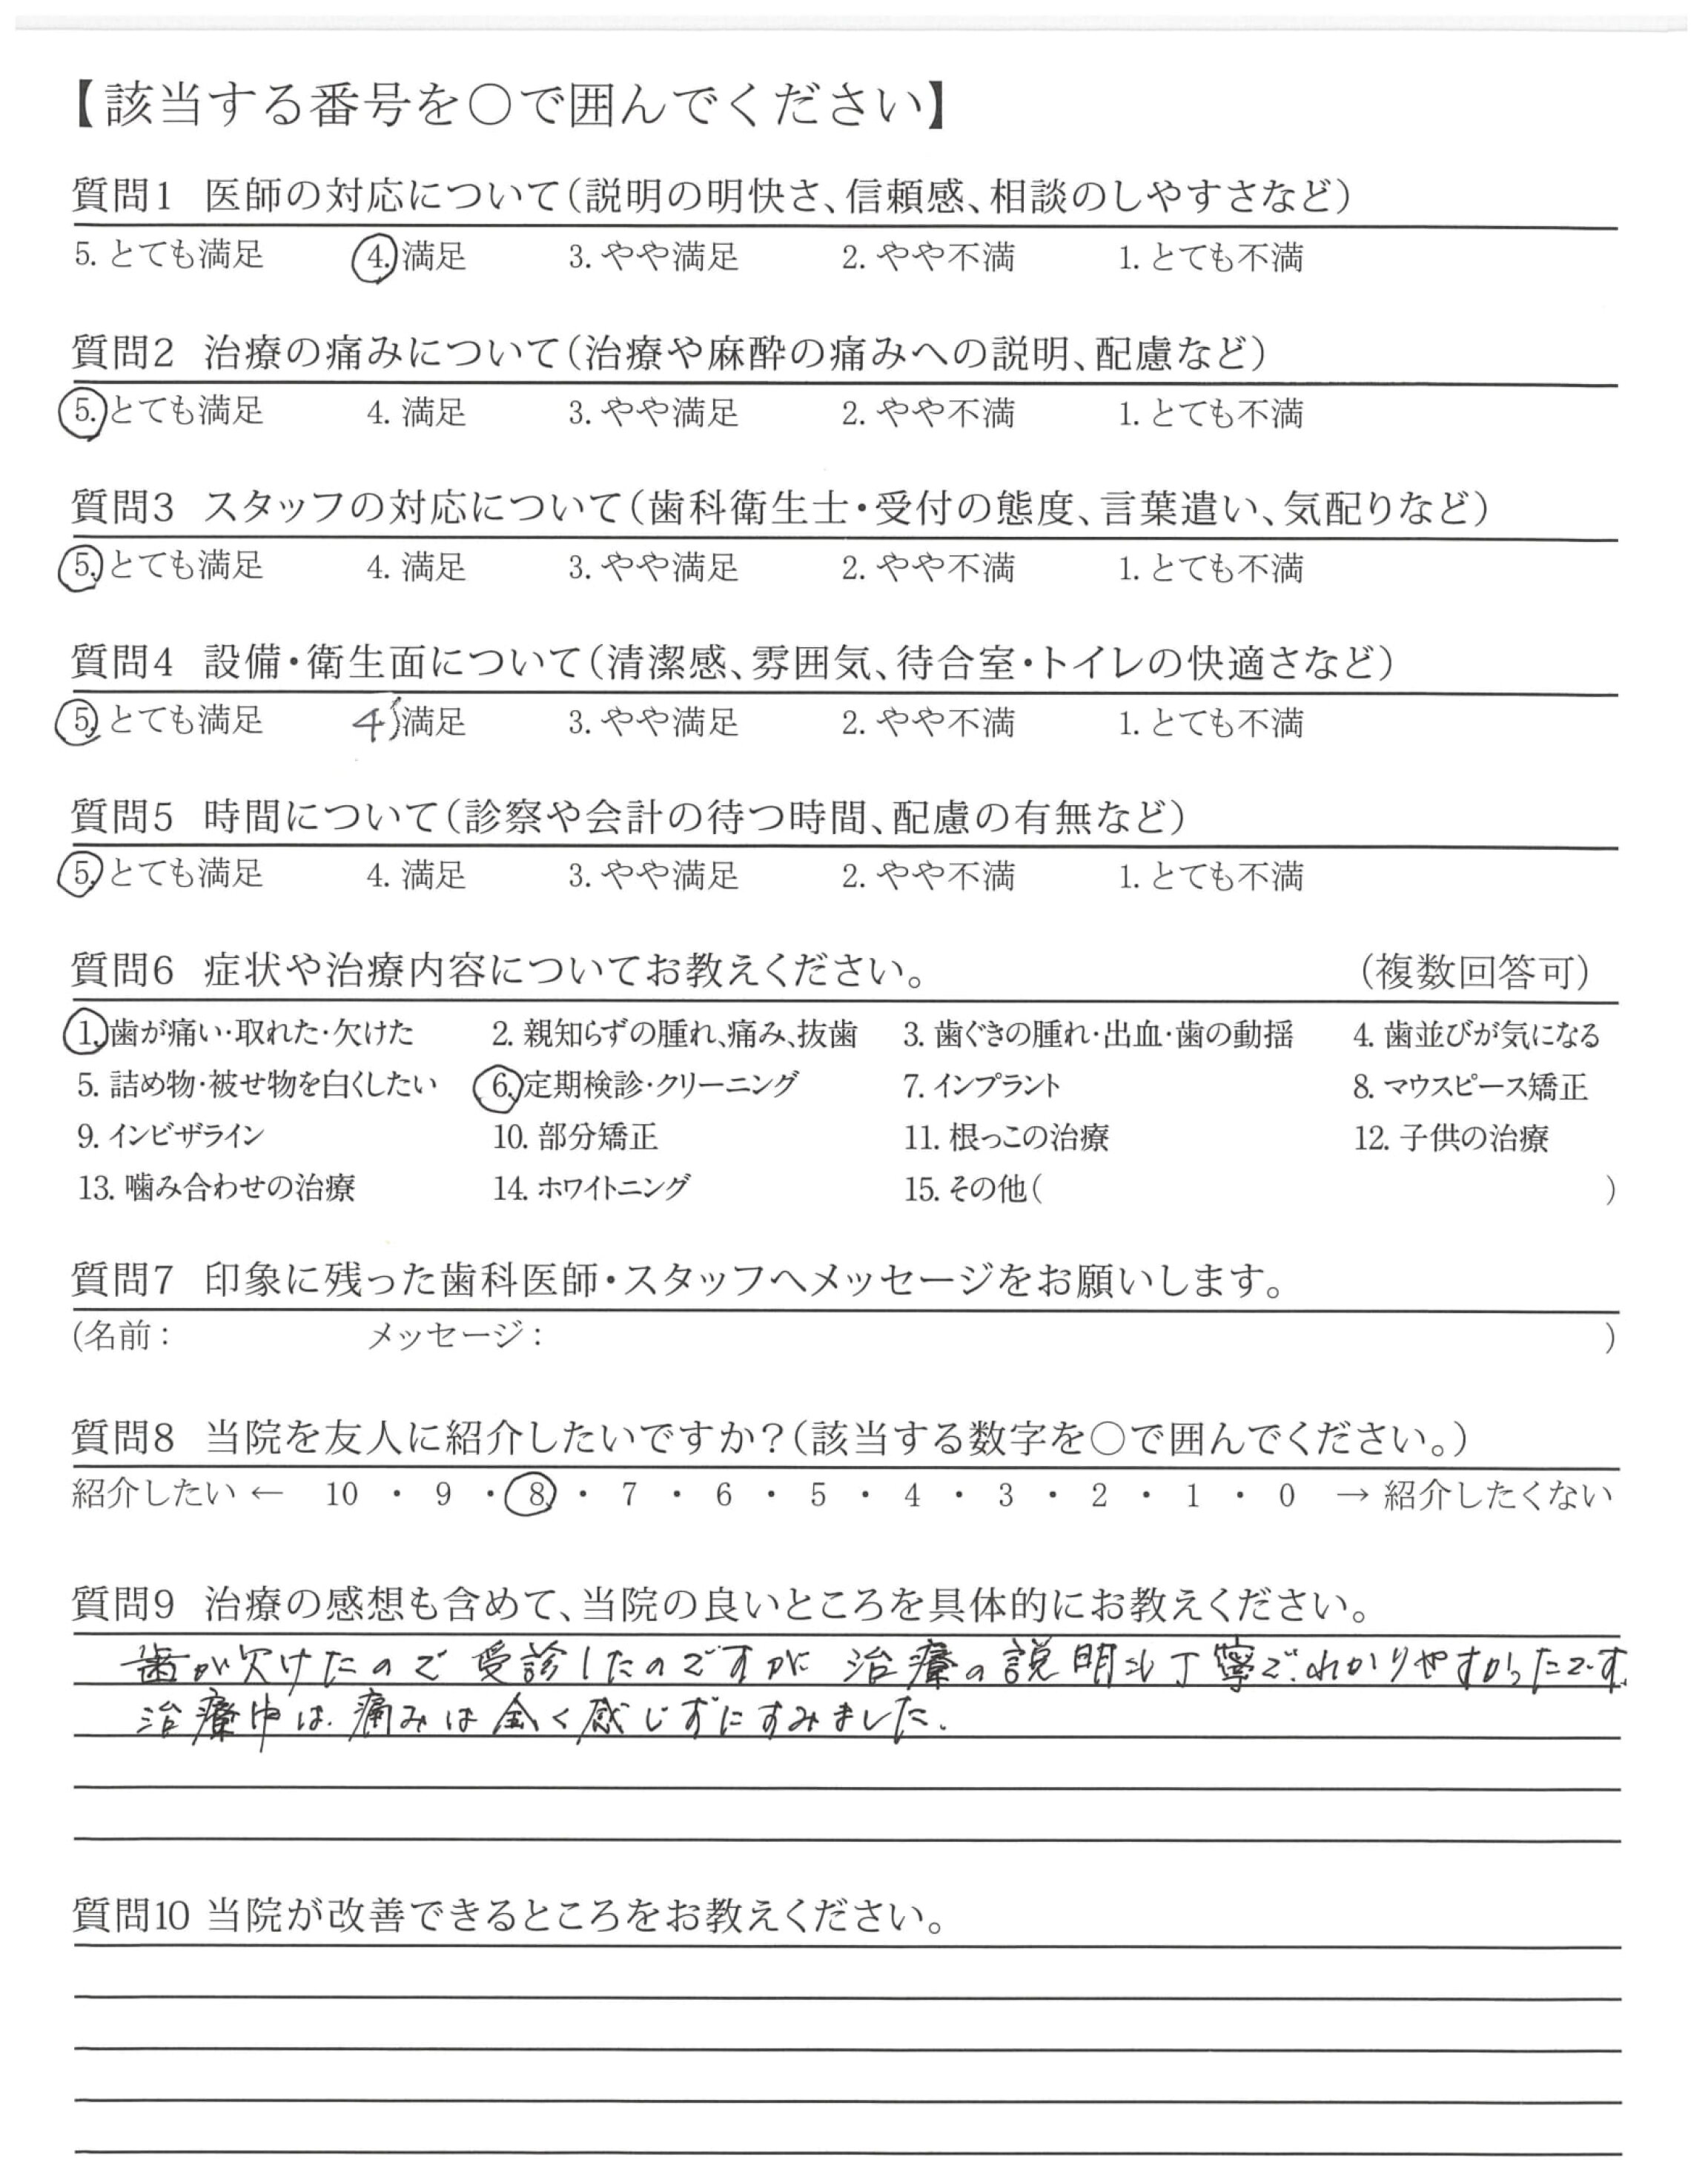 【該当する番号を○で囲んでください】
質問1 医師の対応について(説明の明快さ、信頼感、相談のしやすさなど)
5. とても満足 4. 満足 3. やや満足 2. やや不満 1. とても不満
質問2 治療の痛みについて(治療や麻酔の痛みへの説明、配慮など)
5. とても満足 4. 満足 3. やや満足 2. やや不満 1. とても不満
質問3 スタッフの対応について(歯科衛生士・受付の態度、言葉遣い、気配りなど)
5. とても満足 4. 満足 3. やや満足 2. やや不満 1. とても不満
質問4 設備・衛生面について(清潔感、雰囲気、待合室・トイレの快適さなど)
5. とても満足 4 満足 3. やや満足 2. やや不満 1. とても不満
質問5 時間について(診察や会計の待つ時間、配慮の有無など)
5. とても満足 4. 満足 3. やや満足 2. やや不満 1. とても不満
質問6 症状や治療内容についてお教えください。 (複数回答可)
1. 歯が痛い・取れた・欠けた 2. 親知らずの腫れ、痛み、抜歯 3. 歯ぐきの腫れ・出血・歯の動揺 4. 歯並びが気になる
5. 詰め物・被せ物を白くしたい 6. 定期検診・クリーニング 7. インプラント 8. マウスピース矯正
9. インビザライン 10. 部分矯正 11. 根っこの治療 12. 子供の治療
13. 噛み合わせの治療 14. ホワイトニング 15. その他( )
質問7 印象に残った歯科医師・スタッフへメッセージをお願いします。
(名前: メッセージ: )
質問8 当院を友人に紹介したいですか?(該当する数字を○で囲んでください。)
紹介したい ← 10 ・ 9 ・ 8 ・ 7 ・ 6 ・ 5 ・ 4 ・ 3 ・ 2 ・ 1 ・ 0 → 紹介したくない
質問9 治療の感想も含めて、当院の良いところを具体的にお教えください。
歯が欠けたので受診したのですが 治療の説明も丁寧で、わかりやすかったです。
治療中は、痛みは全く感じずにすみました。
質問10 当院が改善できるところをお教えください。